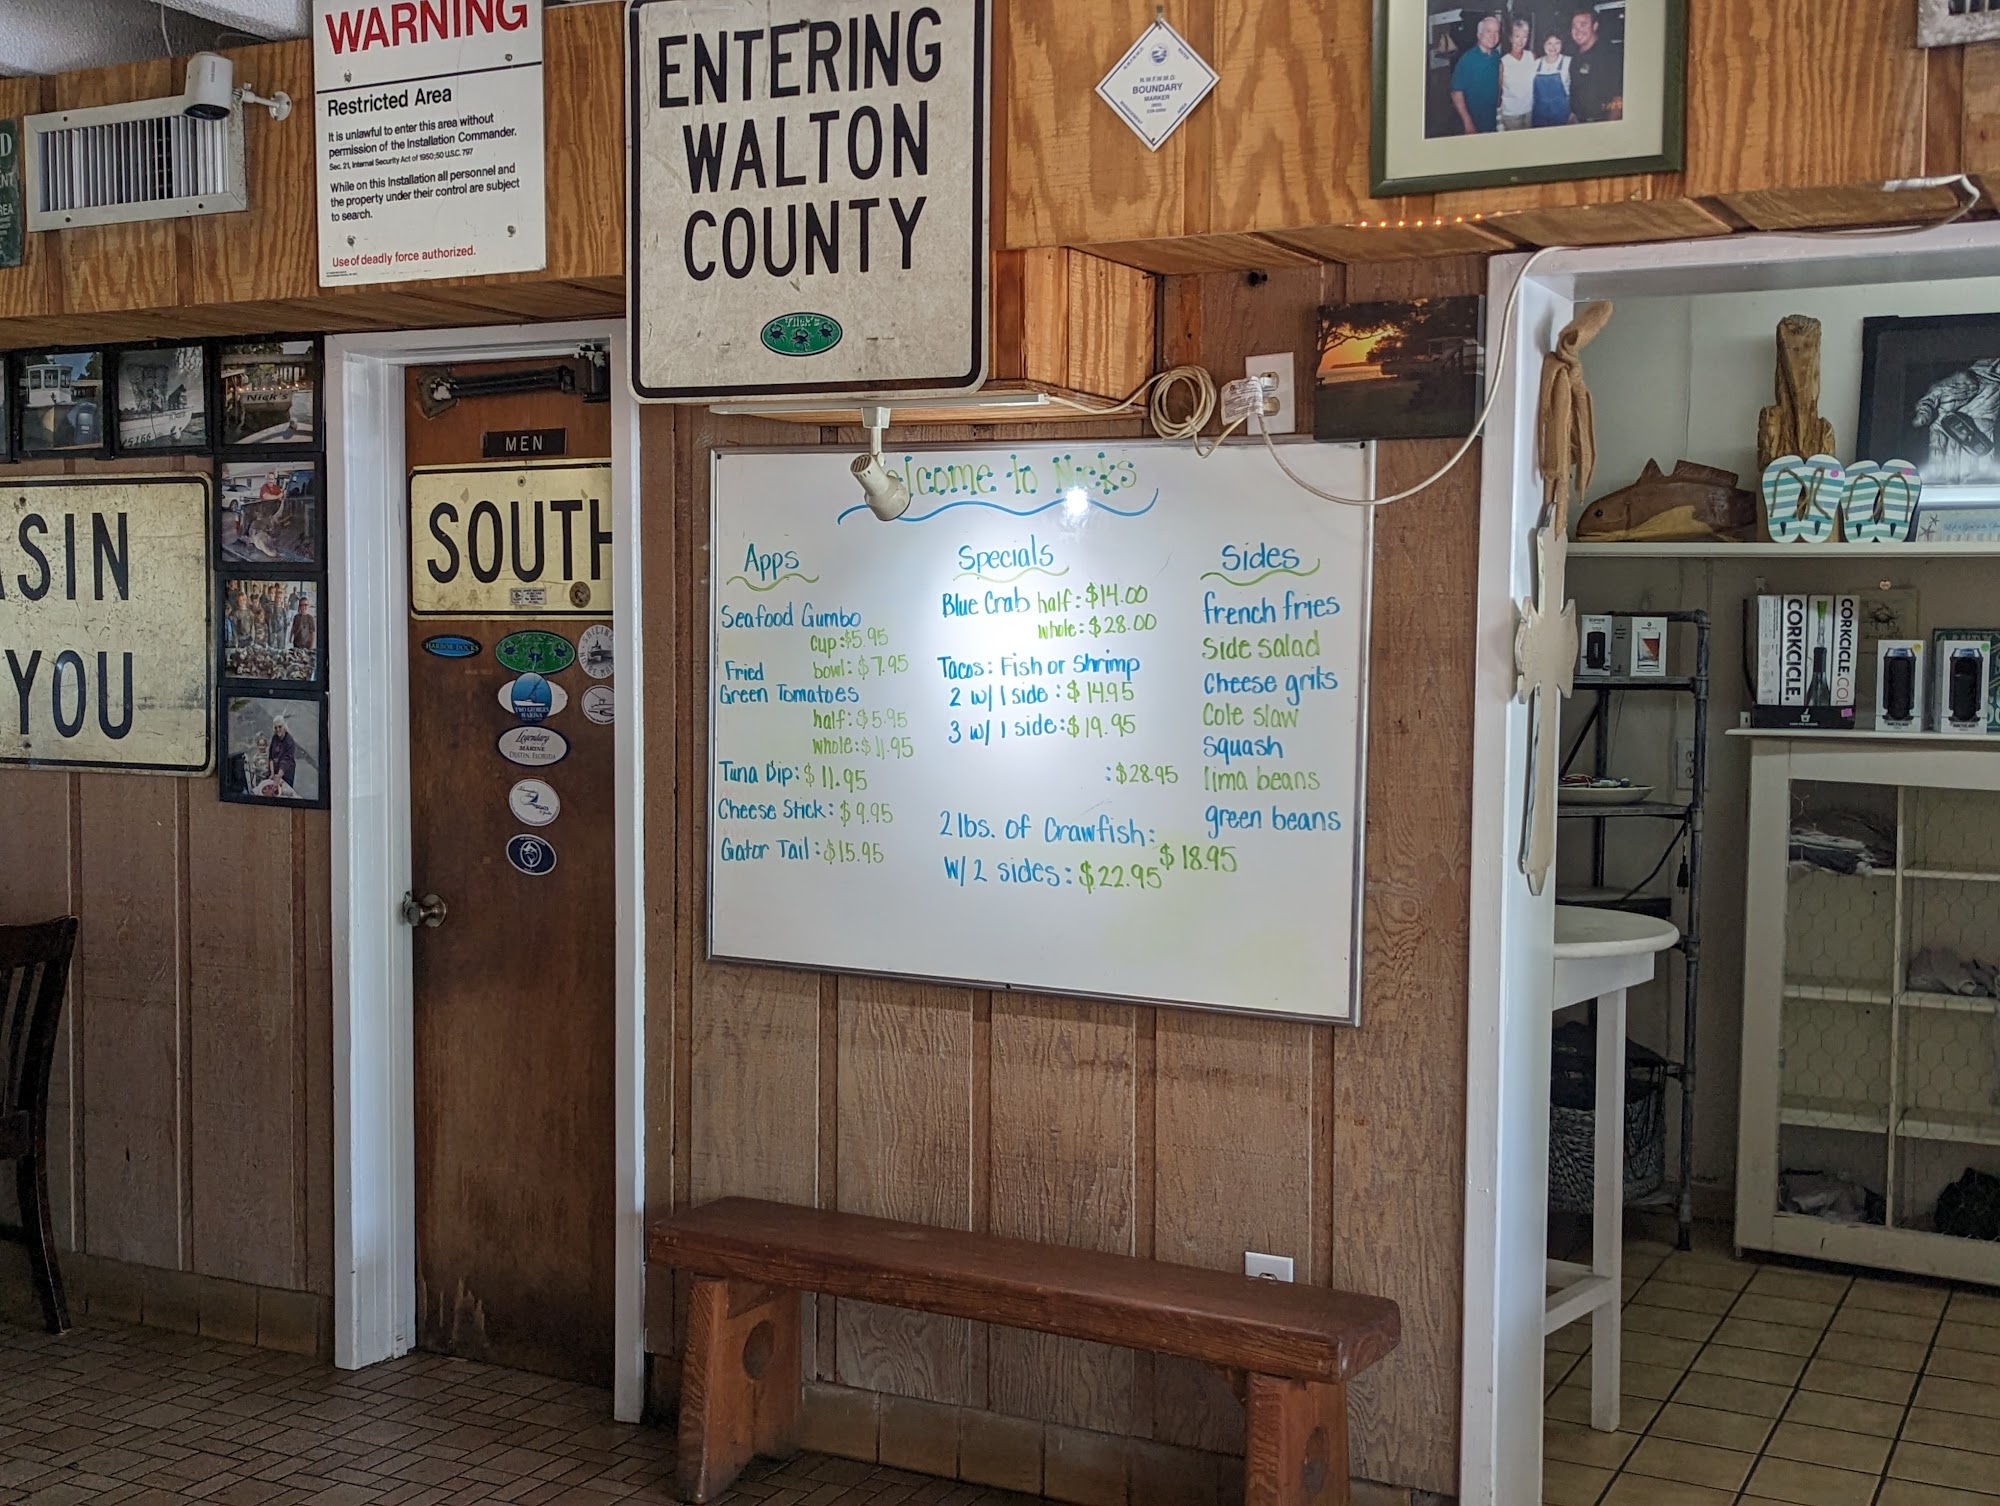 WARNING
Restricted Area
It is unlawful to enter this area without
permission of the Installation Commander.
Sec. 21, Internal Security Act of 1950; 50 U.S.C. 797
While on this Installation all personnel and
the property under their control are subject
to search.
Use of deadly force authorized.
ENTERING
WALTON
COUNTY
Nick's
N.W.F.W.M.D.
BOUNDARY
MARKER
MEN
SOUTH
SIN
YOU
Nick's
HARBOR DOCKS
TWO GEORGES
MARINA
Legendary
MARINE
DESTIN, FLORIDA
lcome to Nicks
Apps
Seafood Gumbo
cup: $5.95
bowl: $7.95
Fried
Green Tomatoes
half: $5.95
whole: $11.95
Tuna Dip: $11.95
Cheese Stick: $9.95
Gator Tail: $15.95
Specials
Blue Crab half: $14.00
whole: $28.00
Tacos: Fish or Shrimp
2 w/ 1 side: $14.95
3 w/ 1 side: $19.95
: $28.95
2 lbs. of Crawfish:
$18.95
w/ 2 sides: $22.95
Sides
french fries
Side salad
Cheese grits
Cole slaw
Squash
lima beans
green beans
CORKCICLE.
CORKCICLE.CO